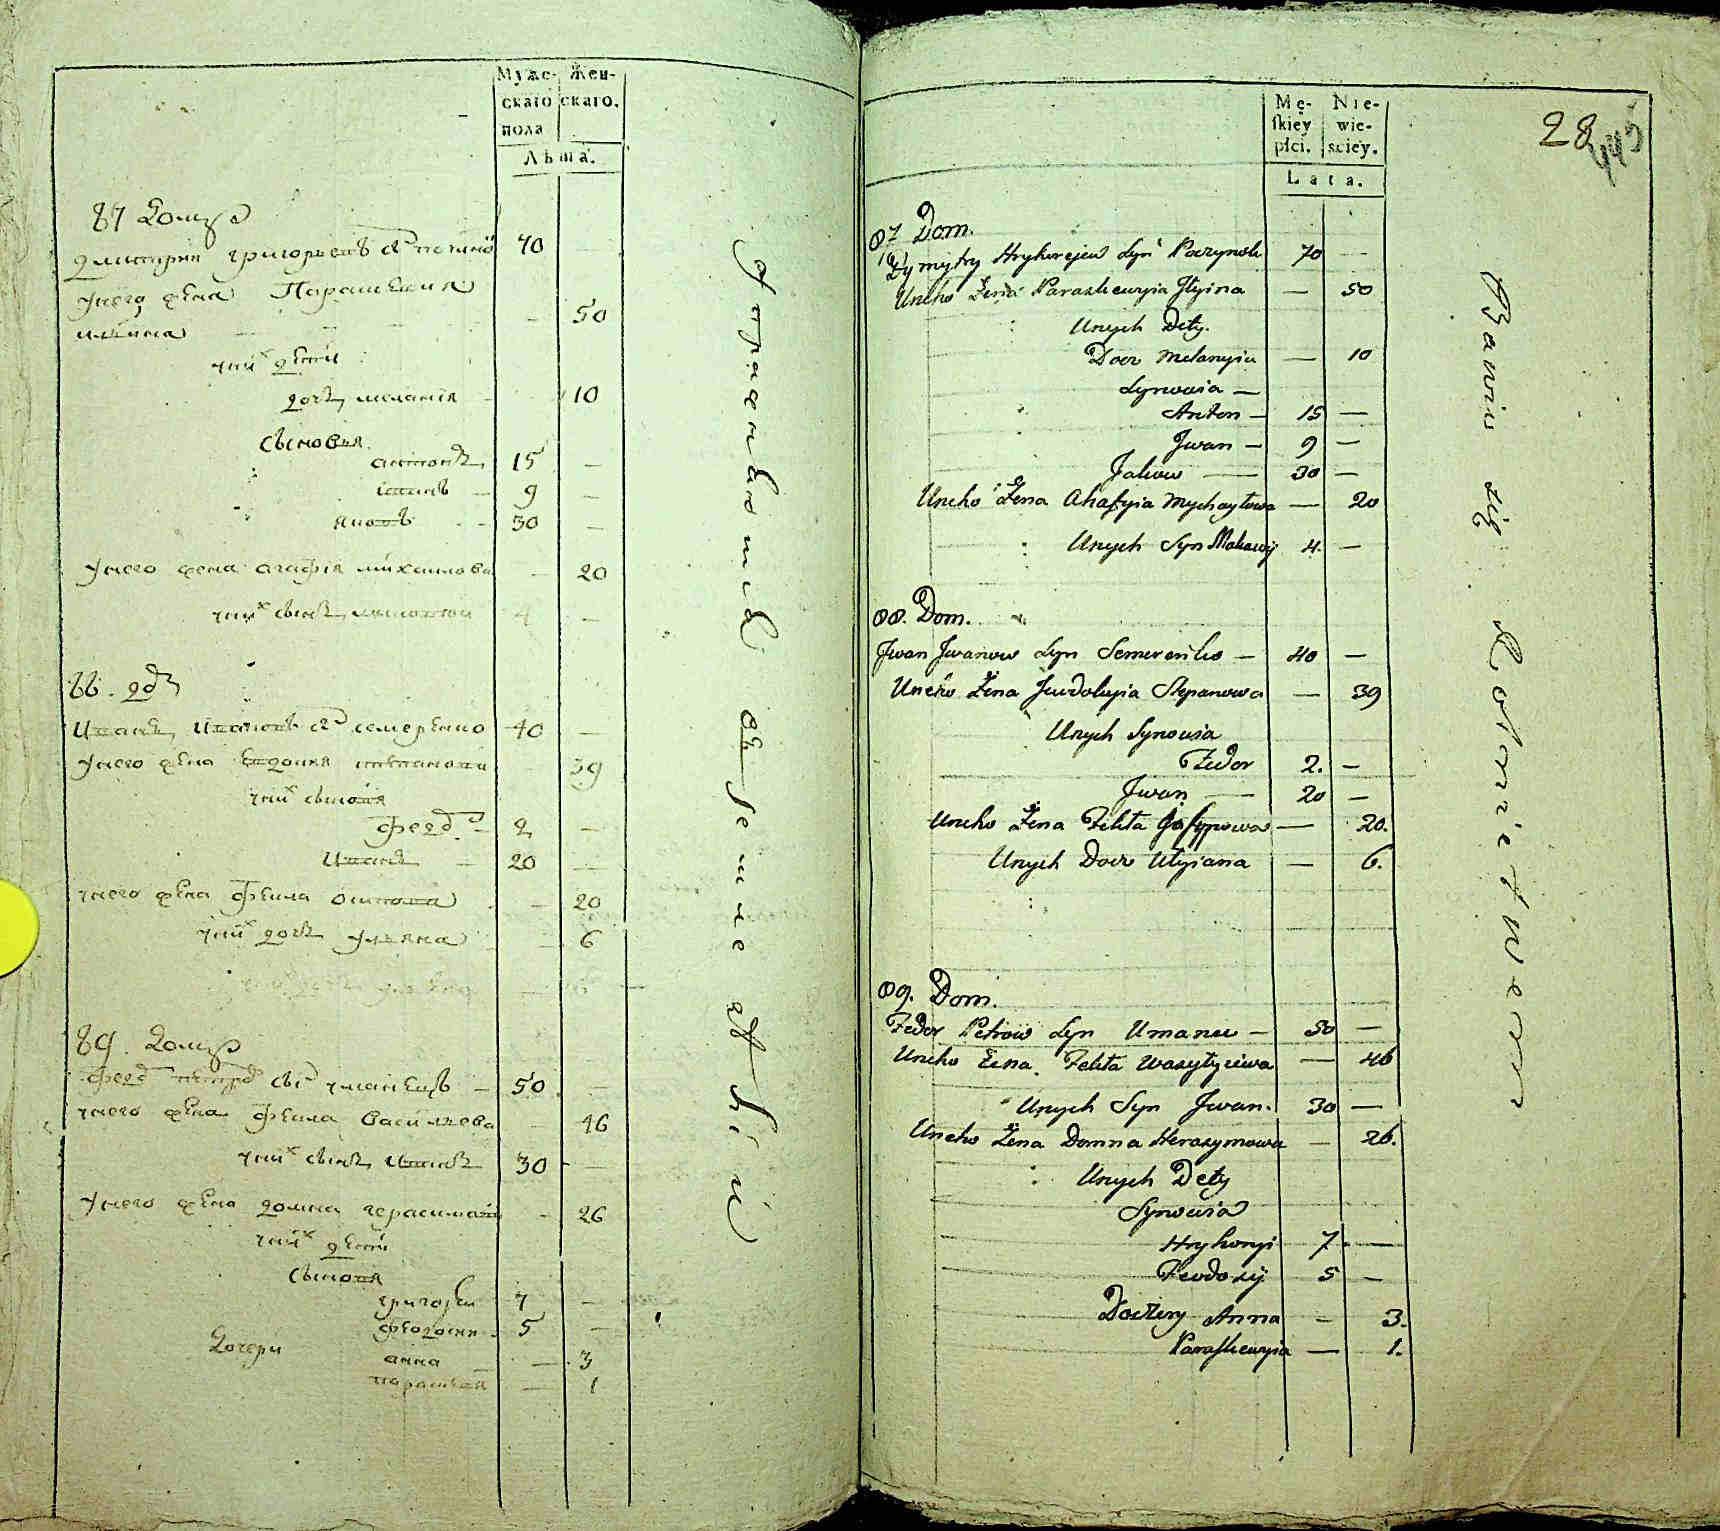 Муже-
скаго
пола
Жен-
скаго.
Лѣта.
87 Домъ
Дмитрий Григорьевъ сынъ
70
У него жена Парашкевия
Ильина
50
у них дети
дочь мелания
10
сыновья
антонъ
15
иванъ
9
яковъ
30
У него жена агафия михаилова
20
у них сынъ
4
88. д
Иванъ Ивановъ сынъ семеренко
40
У него жена Евдокия степанова
39
у них сыновя
федор
2
Иванъ
20
у него жена Фекла осипова
20
у них дочь уляна
6
89. Домъ
федор петров сын уманецъ
50
у него жена Фекла Василиева
46
у них сынъ иванъ
30
У него жена домна герасимова
26
у них дети
сыновя
григорий
7
феодосий
5
Дочери анна
3
параскевия
1
упражняются въ земледѣлии
Mę-
ſkiey
płci.
Nie-
wie-
sciey.
Lata.
28
445
87 Dom.
Dymytry Hryhorejew Syn 70 —
Uneho Żena Paraskewyia Jlyina — 50
Unych Dety.
Docz Melanyia — 10
Synowia —
Anton — 15 —
Jwan — 9 —
Jakow — 30 —
Uneho Żena Ahafyia Mychayłowa — 20
Unych Syn Makawij 4. —
88. Dom.
Jwan Jwanow Syn Semereńko — 40 —
Uneho Żena Jewdokyia Stepanowa — 39
Unych Synowia
Fedor 2. —
Jwan — 20 —
Uneho Żena Fekła Josypowa — 20.
Unych Docz Ulyiana — 6.
89. Dom.
Fedor Petrow Syn Umanec — 50 —
Uneho Żena Fekła Wasylyiewa — 46
Unych Syn Jwan. 30 —
Uneho Żena Domna Herasymowa — 26.
Unych Dety
Synowia
Hryhoryi 7. —
Feodosij 5 —
Doczery Anna — 3.
Paraskewyia — 1.
Bawio się Rolnictwem